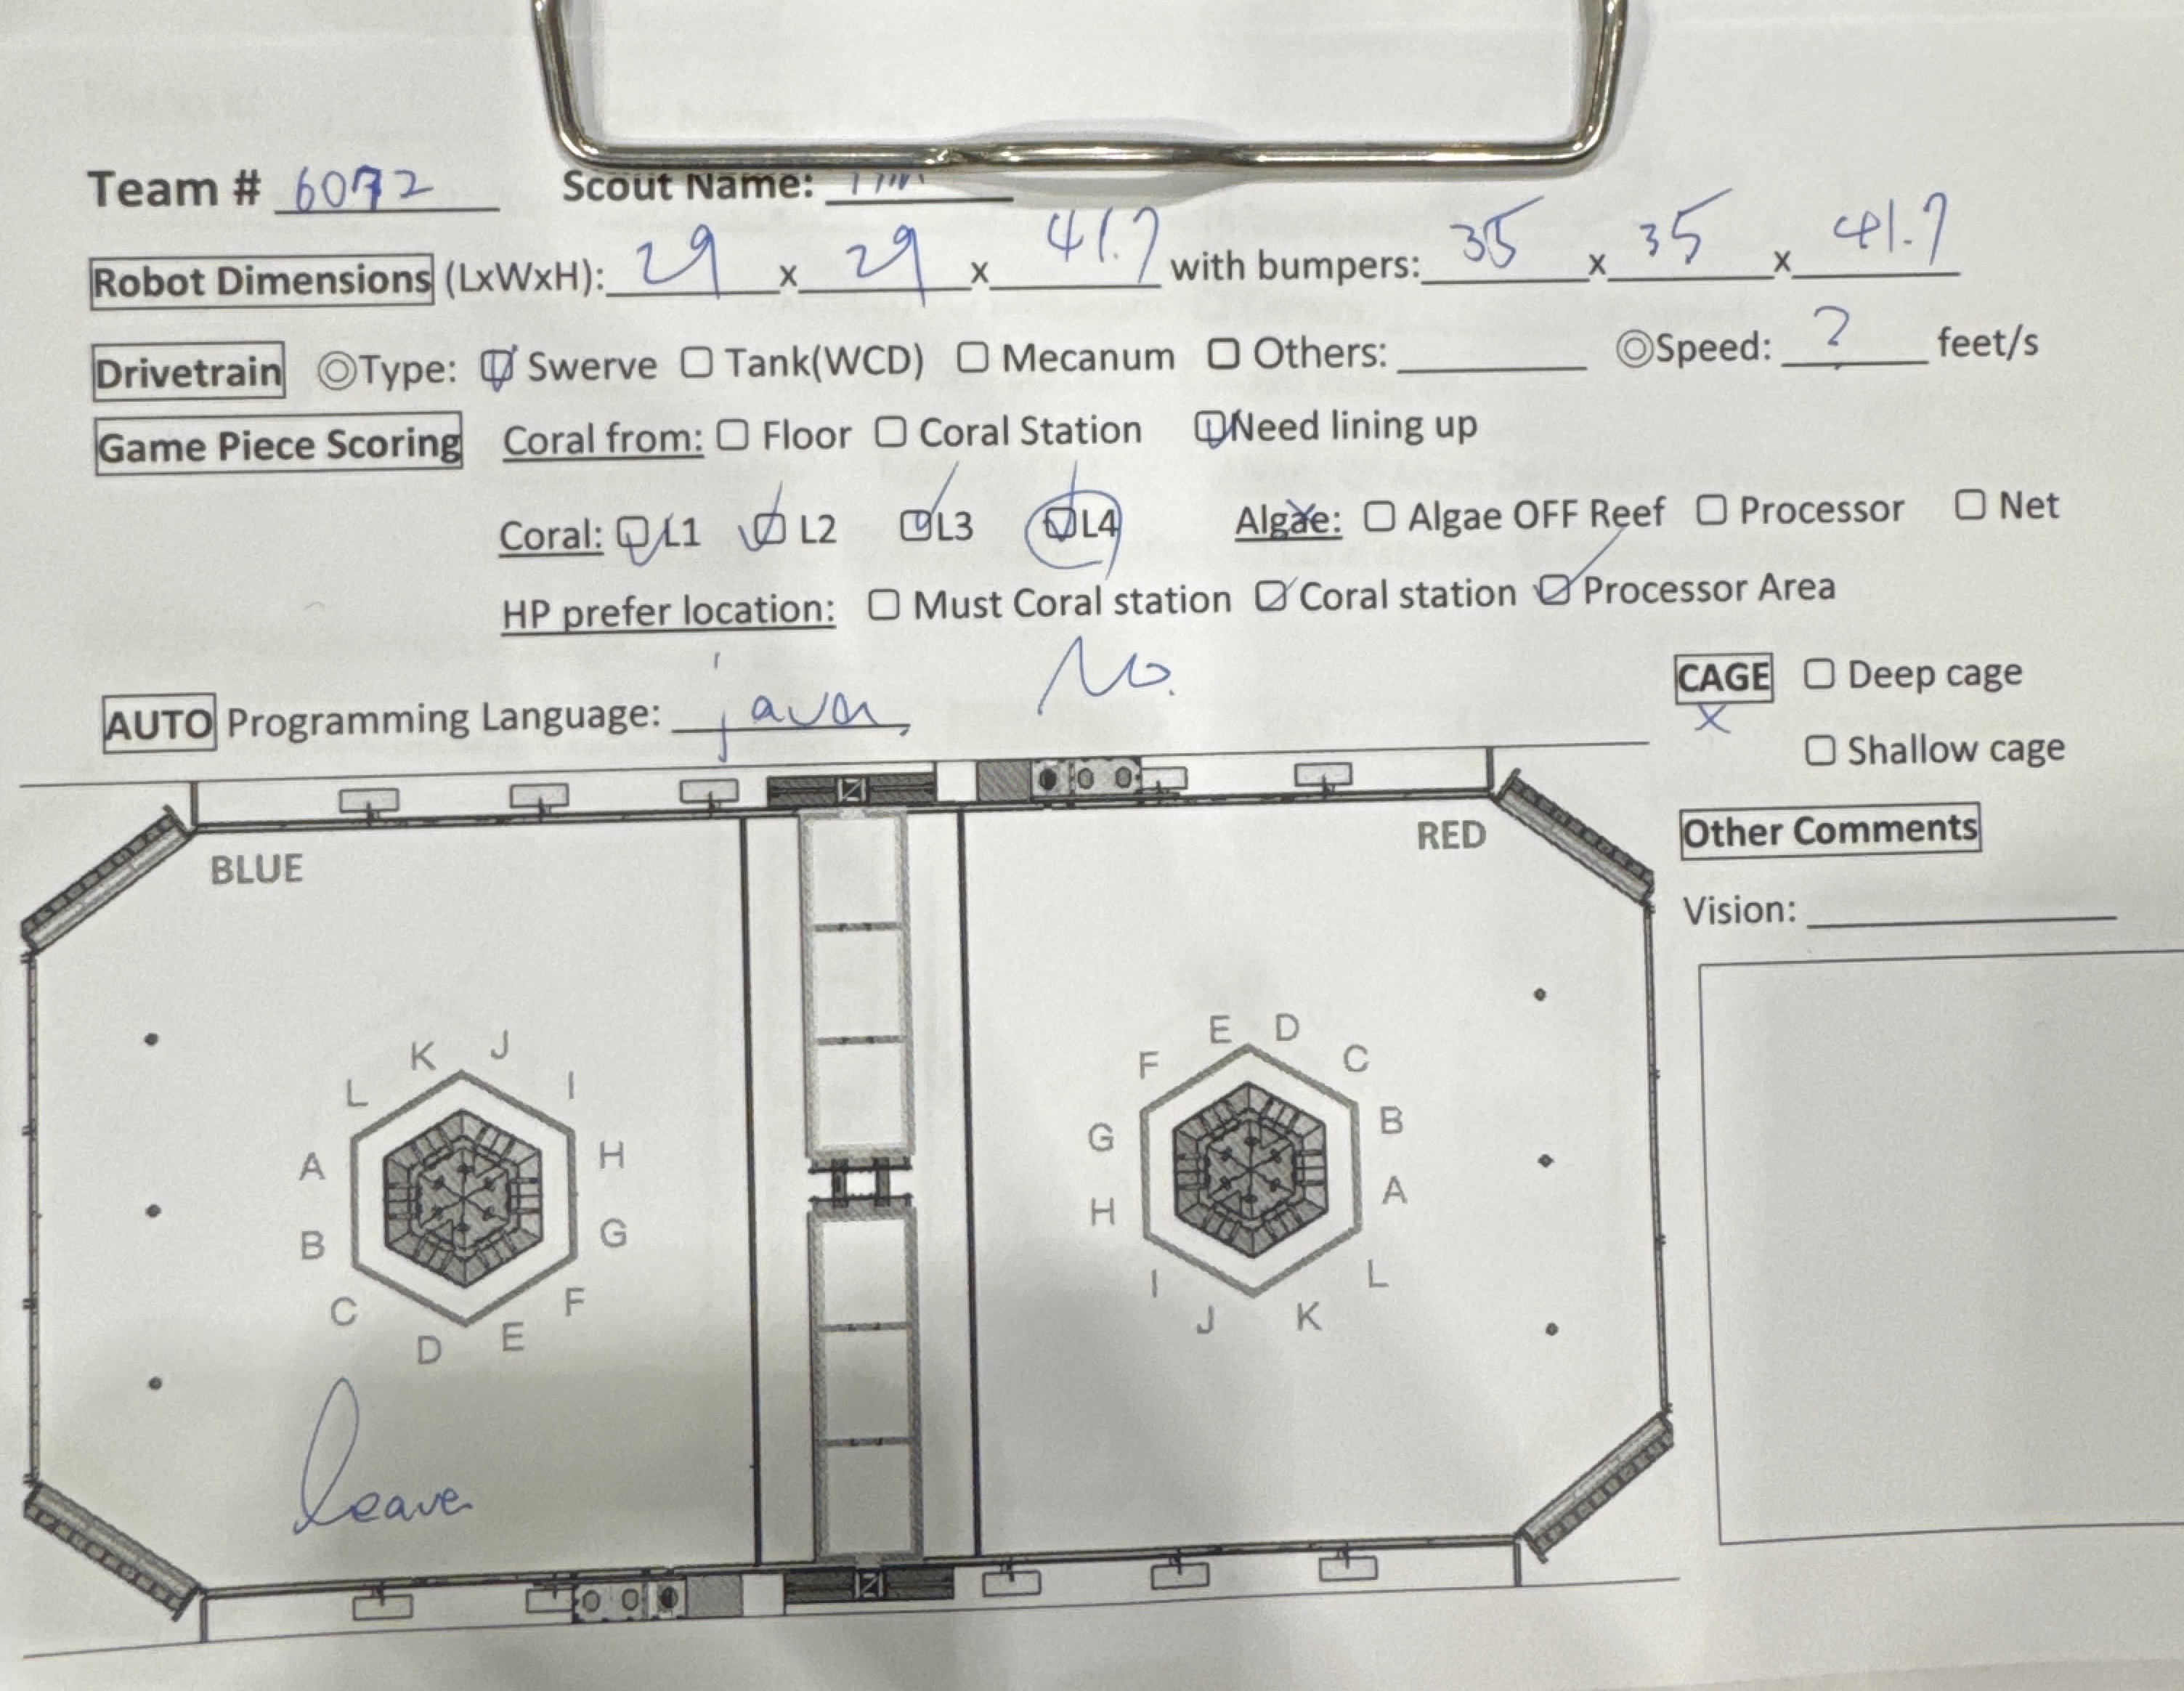 Team # 6072 Scout Name:
Robot Dimensions (LxWxH): 29 x 29 x 41.7 with bumpers: 35 x 35 x 41.7
Drivetrain ◎Type: ☑ Swerve ☐ Tank(WCD) ☐ Mecanum ☐ Others: ______ ◎Speed: ? feet/s
Game Piece Scoring Coral from: ☐ Floor ☐ Coral Station ☑Need lining up
Coral: ☑L1 ☑ L2 ☑L3 ☑L4 Algae: ☐ Algae OFF Reef ☐ Processor ☐ Net
HP prefer location: ☐ Must Coral station ☑Coral station ☑Processor Area
AUTO Programming Language: java No.
CAGE ☐ Deep cage
x ☐ Shallow cage
BLUE RED
Other Comments
Vision: ______
K J E D
L I F C
A H G B
B G H A
C F I L
D E J K
leave